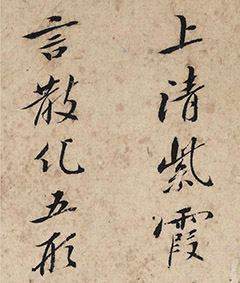 上清紫霞
言散化五形